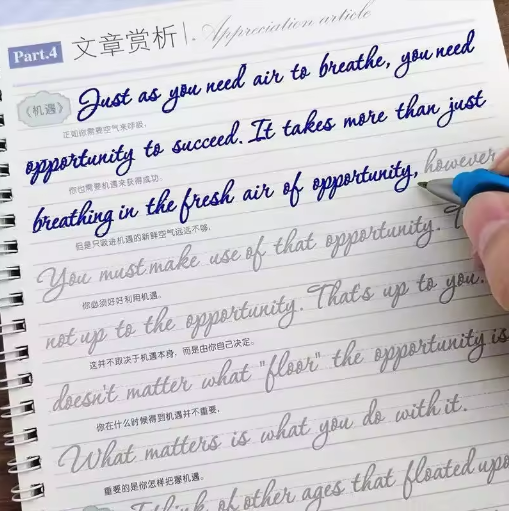 Part.4 文章赏析 Appreciation article
《机遇》 Just as you need air to breathe, you need
正如你需要空气来呼吸,
opportunity to succeed. It takes more than just
你也需要机遇来获得成功。
breathing in the fresh air of opportunity, however
但是只吸进机遇的新鲜空气远远不够,
You must make use of that opportunity. T
你必须好好利用机遇。
not up to the opportunity. That's up to you.
这并不取决于机遇本身,而是由你自己决定。
doesn't matter what "floor" the opportunity is
你在什么时候得到机遇并不重要,
What matters is what you do with it.
重要的是你怎样把握机遇。
I think of other ages that floated upo